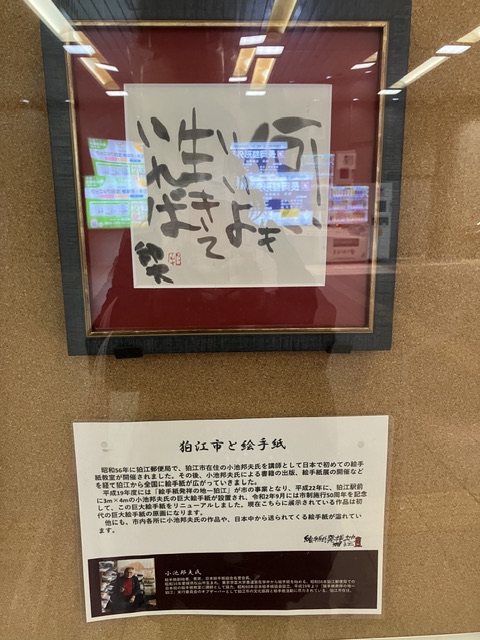 何も
いいよ
生きて
いれば
邦夫
狛江市と絵手紙
昭和56年に狛江郵便局で、狛江市在住の小池邦夫氏を講師として日本で初めての絵手
紙教室が開催されました。その後、小池邦夫氏による書籍の出版、絵手紙展の開催など
を経て狛江から全国に絵手紙が広がっていきました。
平成19年度には「絵手紙発祥の地ー狛江」が市の事業となり、平成22年に、狛江駅前
に3m×4mの小池邦夫氏の巨大絵手紙が設置され、令和2年9月には市制施行50周年を記念
して、この巨大絵手紙をリニューアルしました。現在こちらに展示されている作品は初
代の巨大絵手紙の原画になります。
他にも、市内各所に小池邦夫氏の作品や、日本中から送られてくる絵手紙が溢れてい
ます。
絵手紙発祥の地
小池邦夫氏